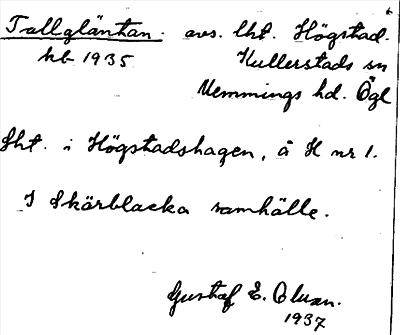 Tallgläntan. avs. lht. Högstad.
kb 1935 Kullerstads sn
Memmings hd. Ögl
Lht. i Högstadshagen, å H nr 1.
I Skärblacka samhälle.
Gustaf E. Olsson.
1937